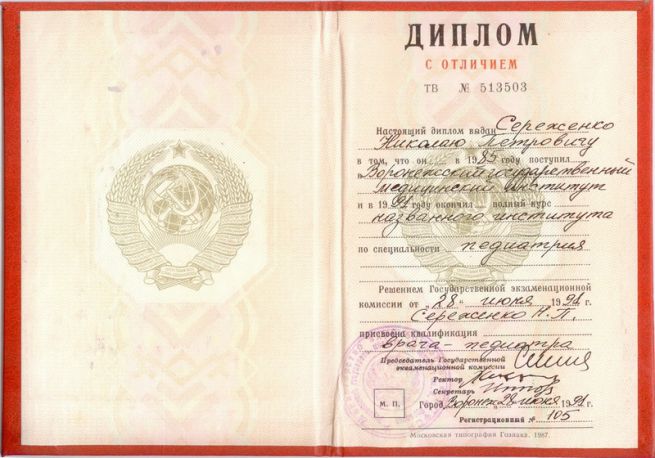 ДИПЛОМ
С ОТЛИЧИЕМ
ТВ № 513503
Настоящий диплом выдан Сереженко
Николаю Петровичу
в том, что он в 1985 году поступил
в Воронежский государственный
медицинский институт
и в 1991 году окончил полный курс
названного института
по специальности педиатрия
Решением Государственной экзаменационной
комиссии от "28" июня 1991 г.
Сереженко Н.П.
присвоена квалификация
врача - педиатра
Председатель Государственной
экзаменационной комиссии
Ректор
Секретарь
М. П.
Город Воронеж 28 июня 1991 г.
Регистрационный № 105
Московская типография Гознака. 1987.